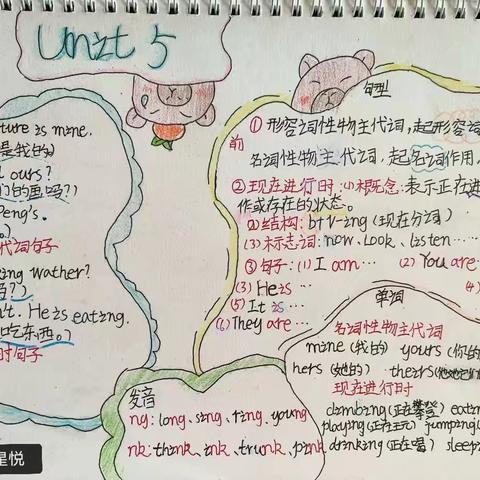 Unit 5
ture is mine.
是我的)
ours?
们的鱼吗?)
Peng's.
代词句子
ing wather?
't. He is eating.
吃东西。)
时句子
句型
① 形容词性物主代词,起形容词
前
名词性物主代词,起名词作用,
② 现在进行时:(1)概念:表示正在进
作或存在的状态。
(2)结构:be+v-ing(现在分词)
(3)标志词:now、Look、Listen……
③句子:(1) I am… (2) You are…
(3) He is… (4)
(5) It is…
(6) They are…
单词
名词性物主代词
mine(我的) yours(你的
hers(她的) theirs
现在进行时
climbing(正在攀登) eatin
playing(正在玩) jumping(
drinking(正在喝) sleepi
发音
ng: long、sing、ring、young
nk: think、ink、trunk、pink
星悦